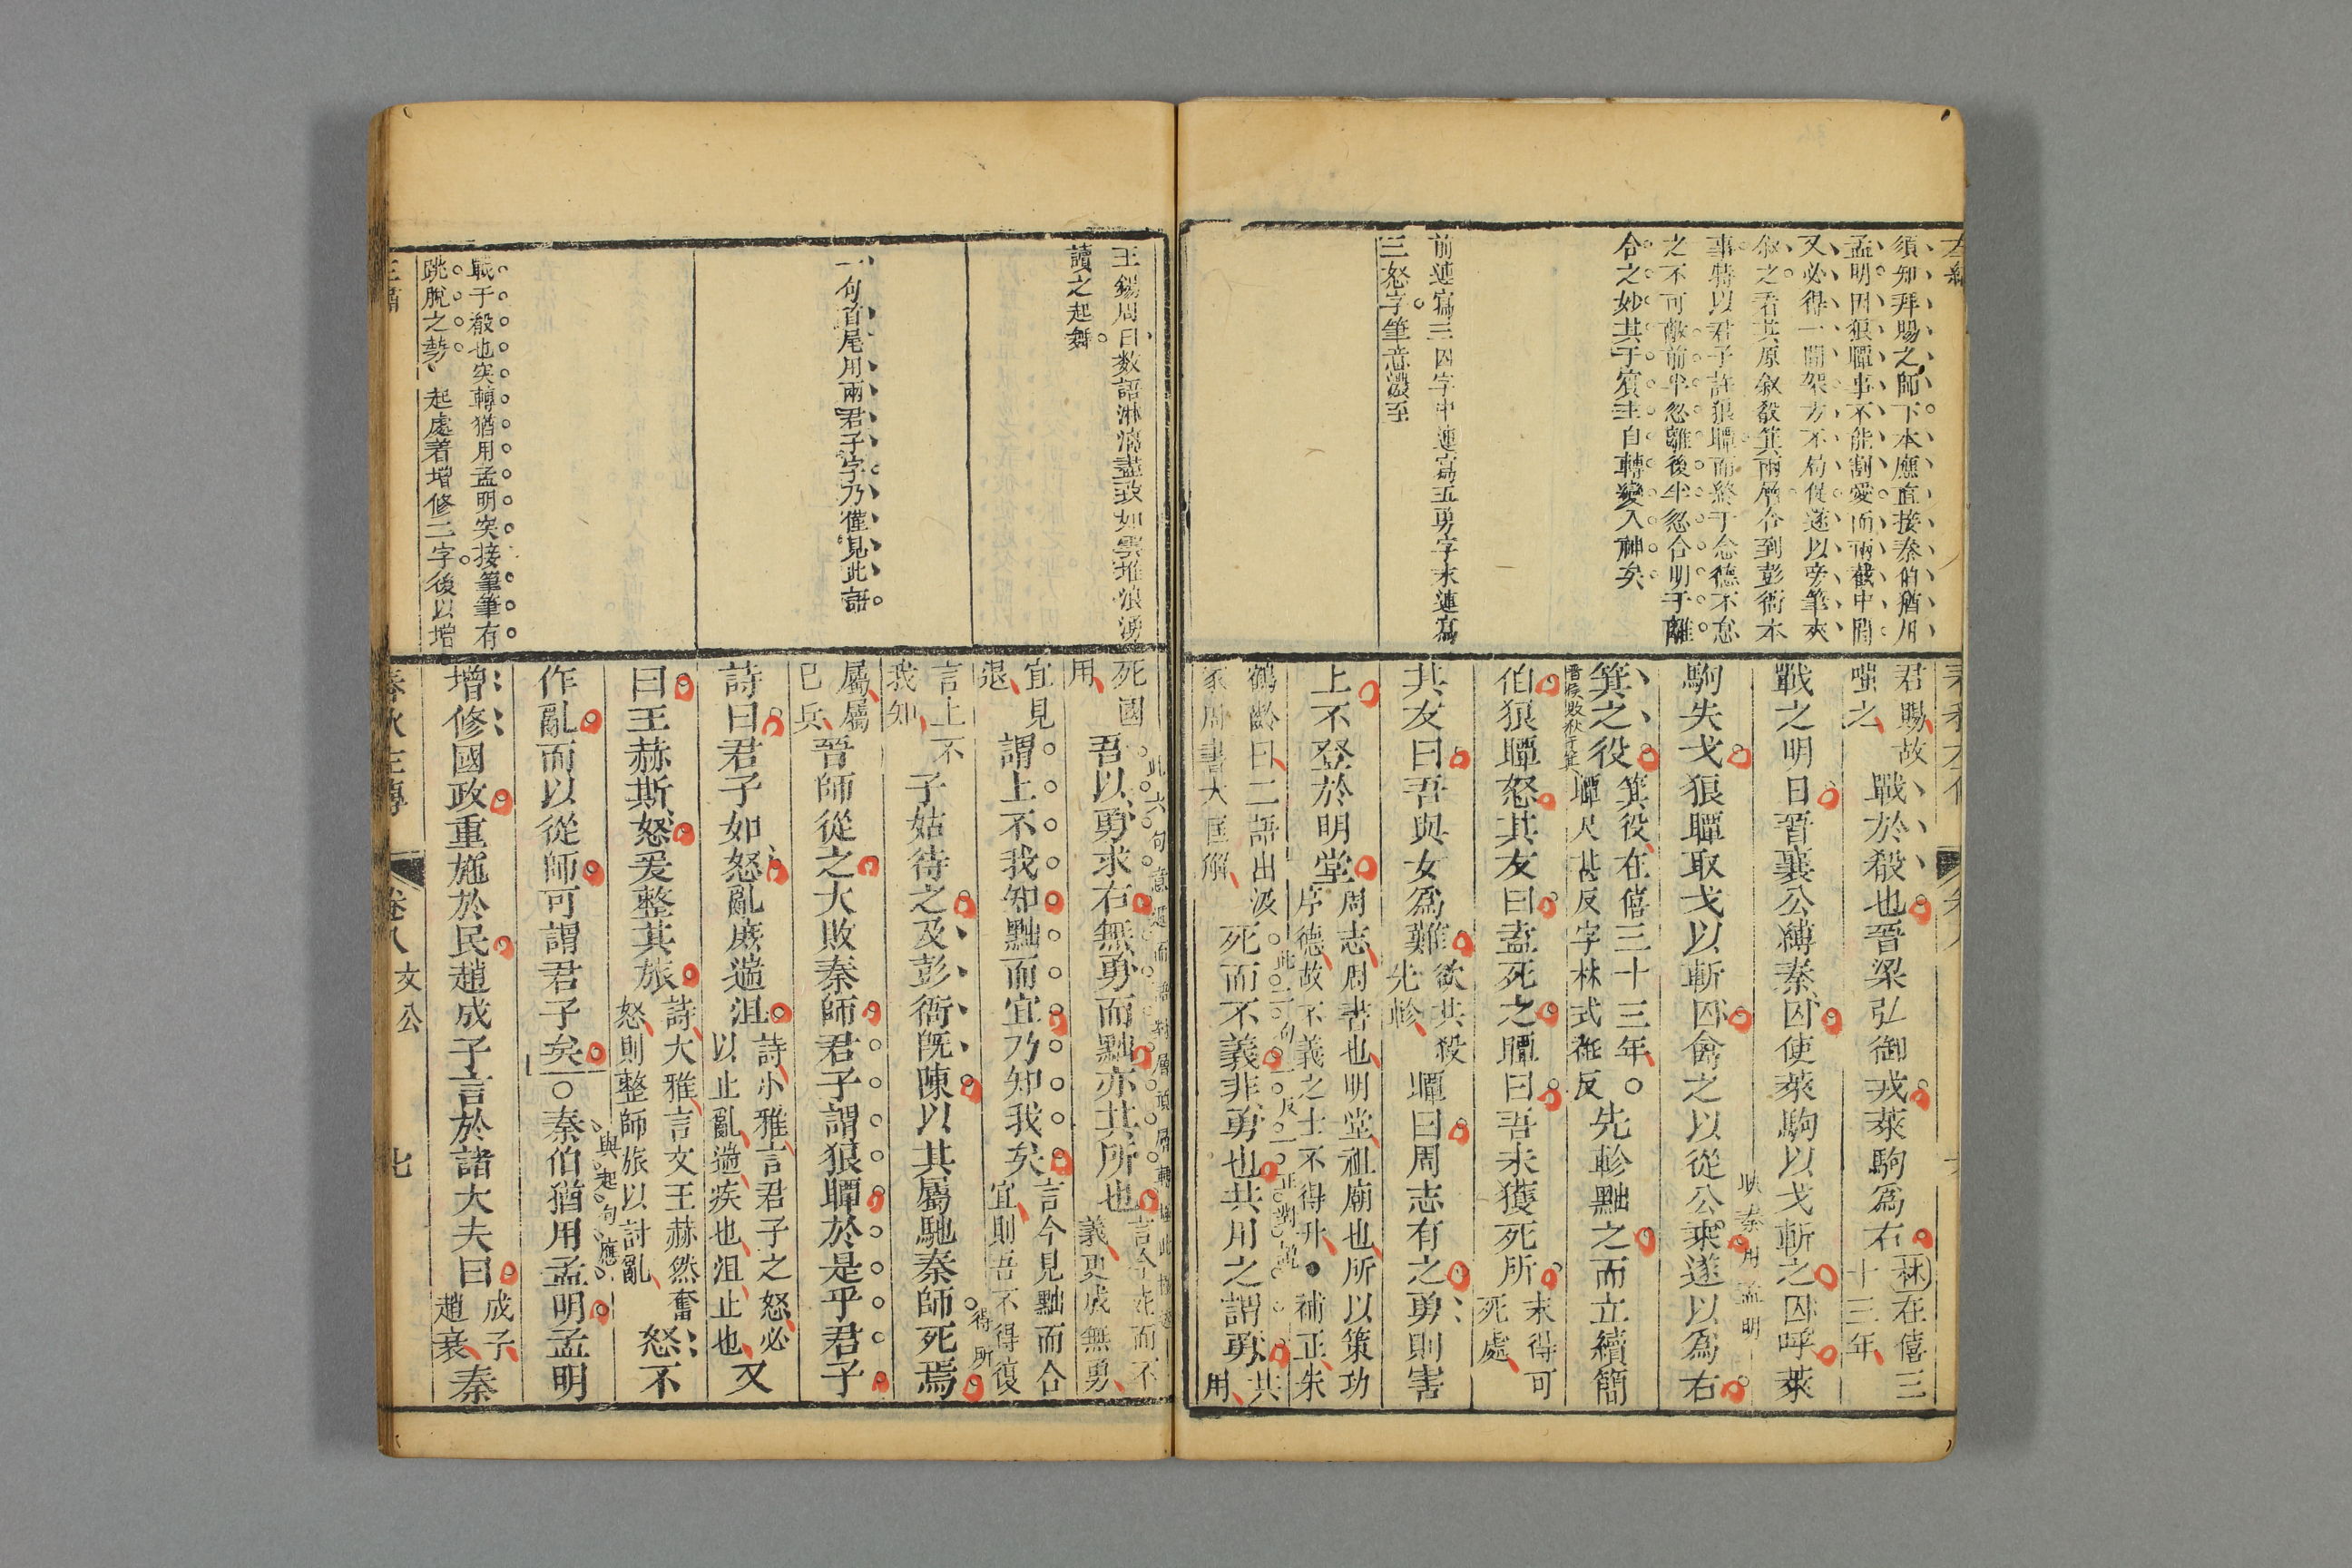 須知拜賜之師下本應直接秦伯猶用
孟明因狼瞫事不能割愛而兩截中間
又必得一間架方不局促遂以旁筆夾
敘之看其原敘殽箕兩層合到彭衙本
事特以君子許狼瞫而終于念德不怠
之不可敵前半忽離後半忽合明于離
合之妙其于賓主自轉變入神矣
前連寫三囚字中連寫五勇字末連寫
三怒字筆意濃至
君賜故
嗤之
戰於殽也晉梁弘御戎萊駒爲右
林在僖三
十三年
戰之明日晉襄公縛秦囚使萊駒以戈斬之囚呼萊
駒失戈狼瞫取戈以斬囚禽之以從公乘遂以爲右
映秦用孟明
箕之役
晉侯敗狄于箕
箕役在僖三十三年
瞫尺甚反字林式衽反
先軫黜之而立續簡
伯狼瞫怒其友曰盍死之瞫曰吾未獲死所
未得可
死處
其友曰吾與女爲難
欲共殺
先軫
瞫曰周志有之勇則害
上不登於明堂
周志周書也明堂祖廟也所以策功
序德故不義之士不得升●補正朱
鶴齡曰二語出汲
冢周書大匡解
死而不義非勇也共用之謂勇
共
用
此二句一反一正對說
王錫周曰数語淋漓盡致如雲堆浪湧
讀之起舞
一句首尾用兩君子字乃僅見此語
戰于殽也突轉猶用孟明突接筆筆有
跳脫之勢 起處着增修二字後以增
死國
用
吾以勇求右無勇而黜亦其所也
言今死而不
義更成無勇
宜見
退
謂上不我知黜而宜乃知我矣
言今見黜而合
宜則吾不得復
言上不
我知
子姑待之及彭衙既陳以其屬馳秦師死焉
得所
屬屬
己兵
晉師從之大敗秦師君子謂狼瞫於是乎君子
詩曰君子如怒亂庶遄沮
詩小雅言君子之怒必
以止亂遄疾也沮止也
又
曰王赫斯怒爰整其旅
詩大雅言文王赫然奮
怒則整師旅以討亂
怒不
作亂而以從師可謂君子矣○秦伯猶用孟明孟明
與起句應
增修國政重施於民趙成子言於諸大夫曰
成子
趙衰
秦
春秋左傳 卷八 文公 七